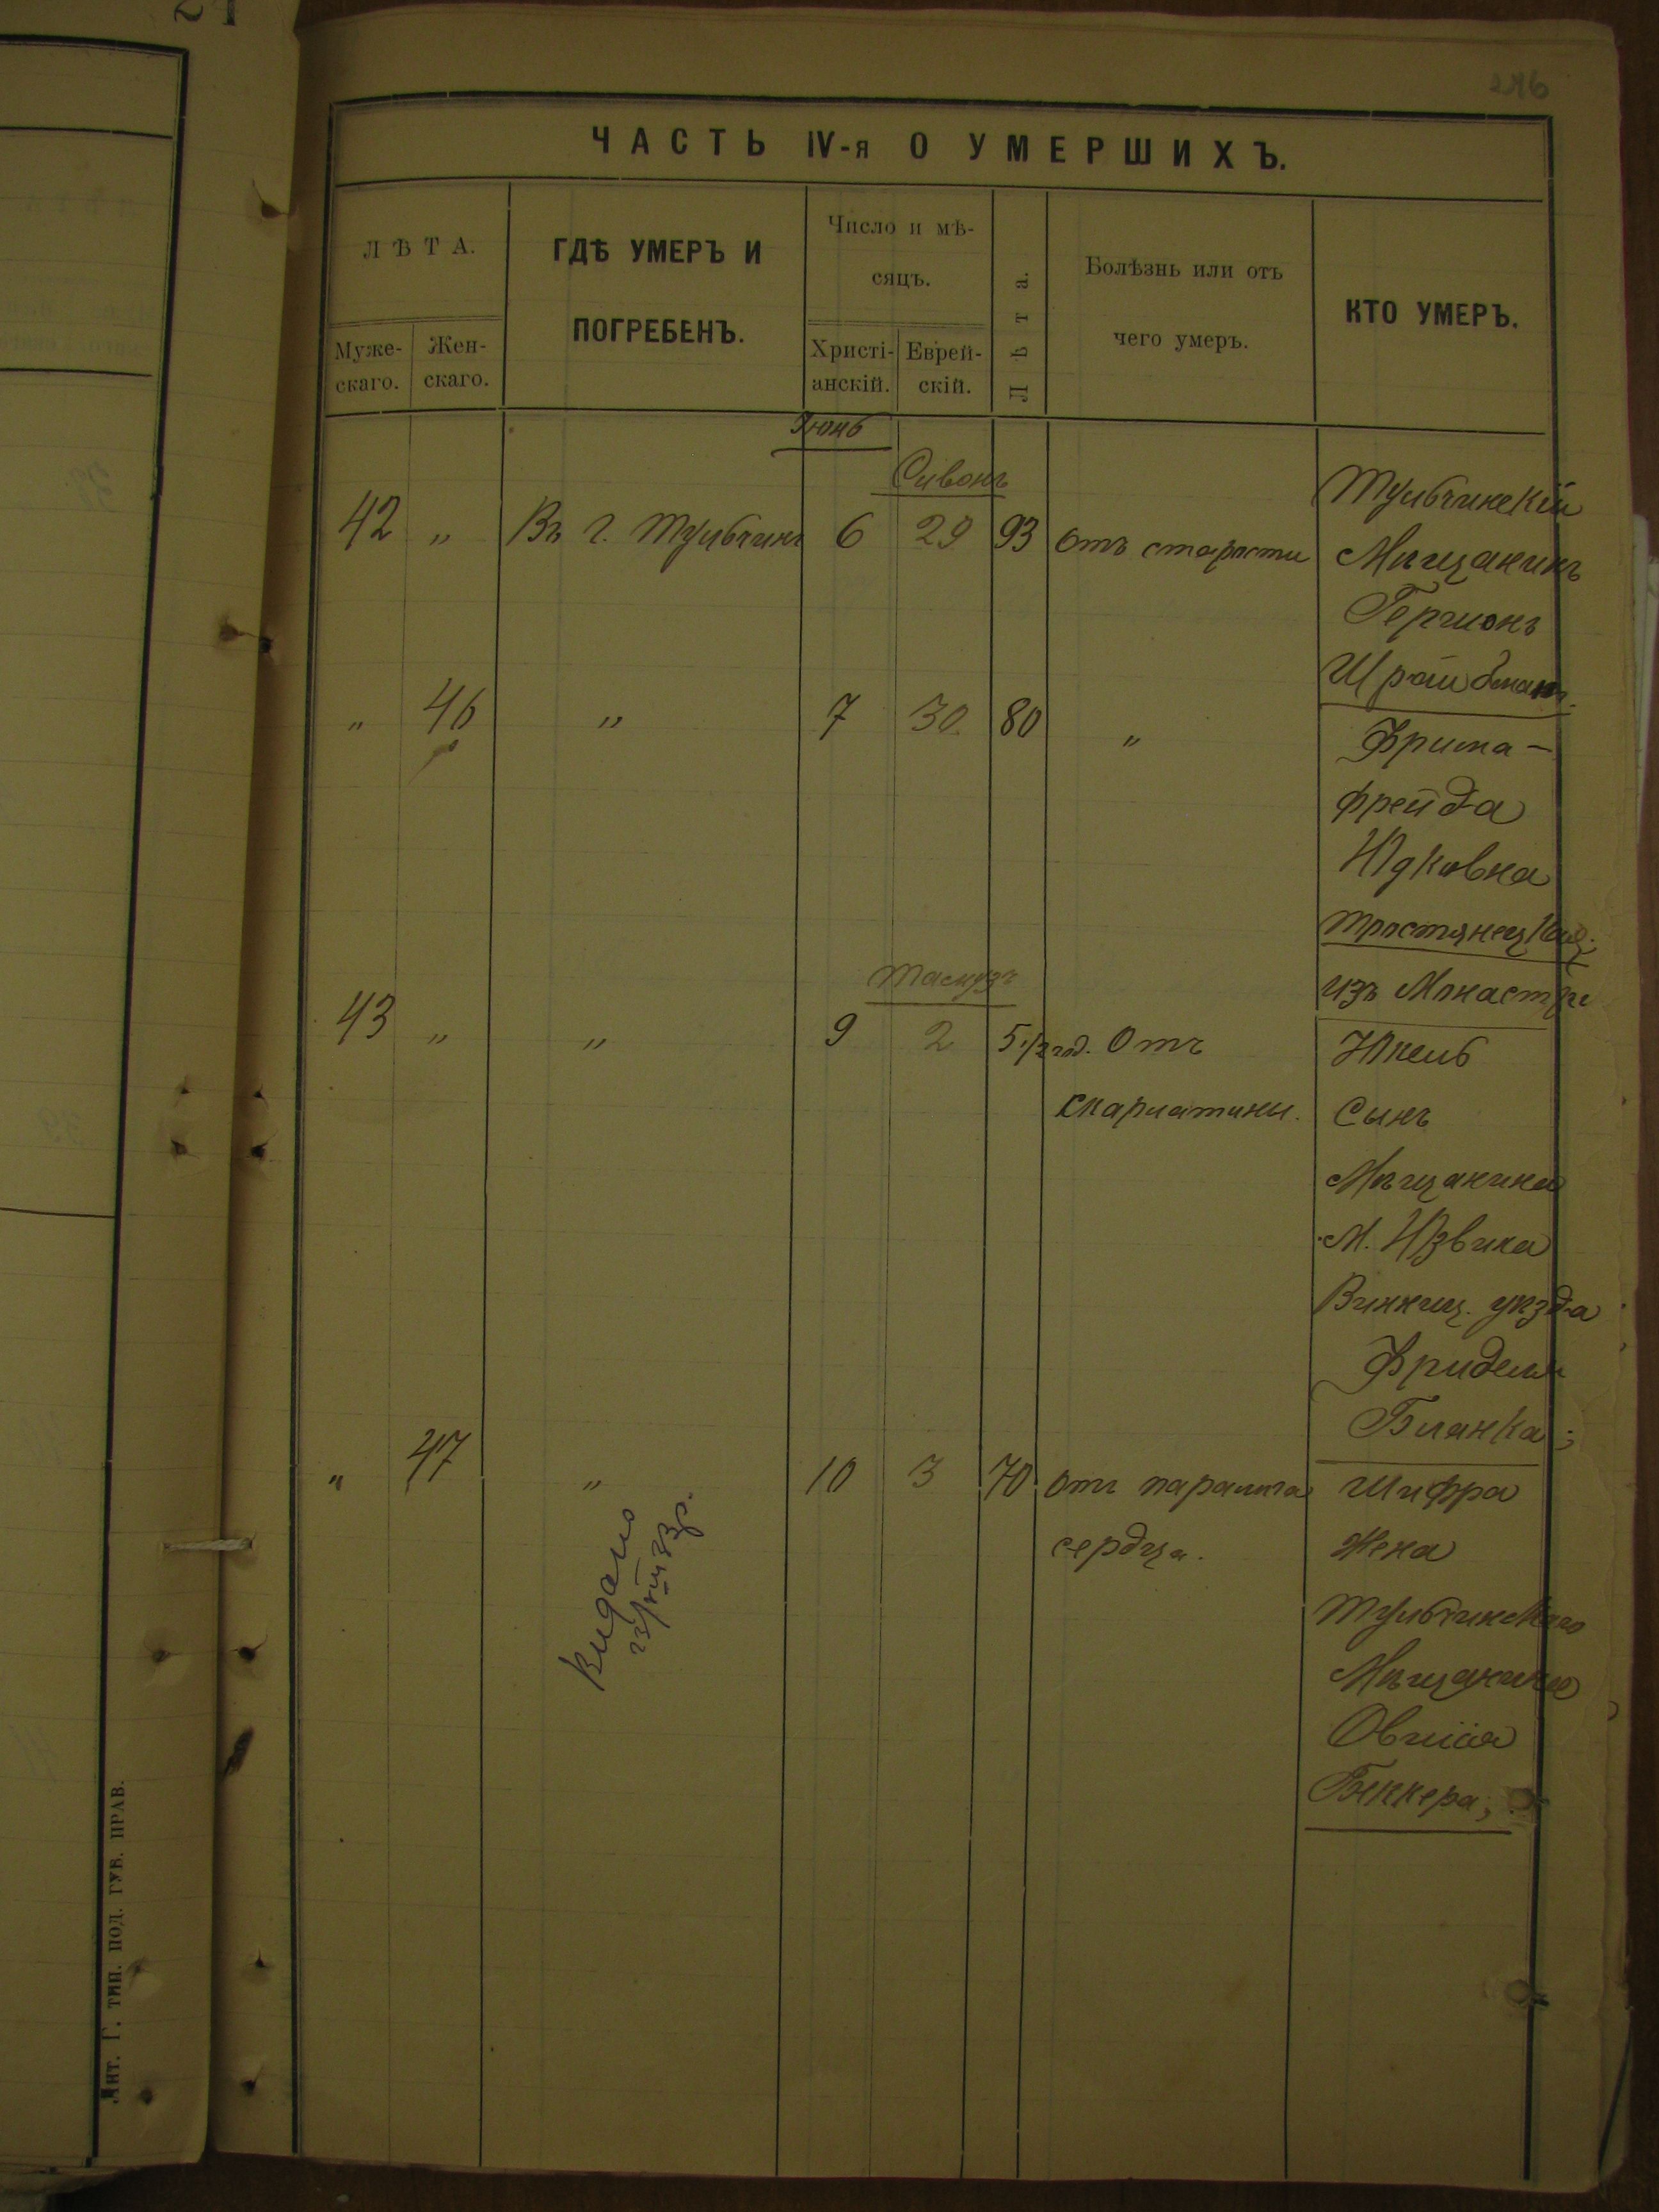 246
ЧАСТЬ IV-я О УМЕРШИХЪ.
ЛѢТА.
Муже-
скаго.
Жен-
скаго.
ГДѢ УМЕРЪ И
ПОГРЕБЕНЪ.
Число и мѣ-
сяцъ.
Христі-
анскій.
Еврей-
скій.
Лѣта.
Болѣзнь или отъ
чего умеръ.
КТО УМЕРЪ.
Іюнь
Сивонъ
42 " Въ г. Тульчинѣ 6 29 93 отъ старости
Тульчинскій
Мѣщанинъ
Гершонъ
Шройбманъ.
" 46 " 7 30. 80 "
Фрима-
фрейда
Юдковна
Тростянецкая;
изъ
Тамузъ
43 " " 9 2 5 1/2 год. Отъ
скарлатины.
Сынъ
Мѣщанина
М.
Винниц. уѣзда
Фриделя
Бланка;
" 47 " 10 3 70 отъ паралича
сердца.
Шифра
Жена
Тульчинскаго
Мѣщанина
Овшія
Беккера;
Видано
23/VIII 33 р.
Лит. Г. тип. под. губ. прав.